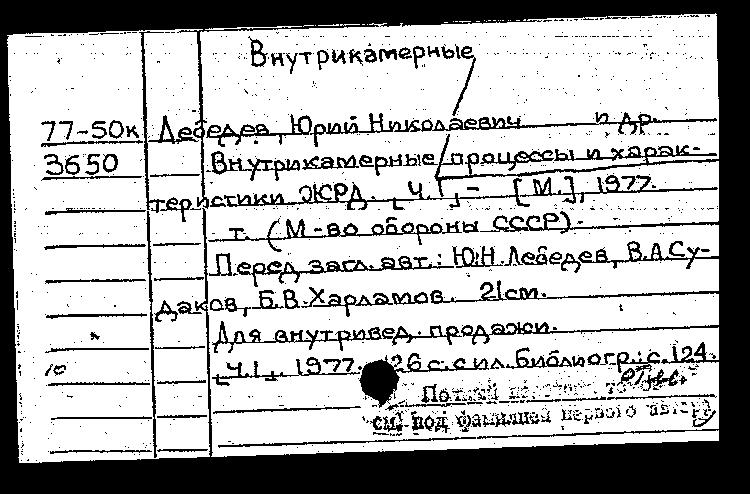 Внутрикамерные
77-50к Лебедев, Юрий Николаевич и др.
3650 Внутрикамерные процессы и харак-
теристики ЖРД. [Ч.1], - [М.], 1977.
т. (М-во обороны СССР).
Перед загл. авт.: Ю.Н. Лебедев, В.А. Су-
даков, Б.В. Харламов. 21см.
Для внутривед. продажи.
10 [Ч.1]. 1977. 126 с. с ил. Библиогр.: с. 124.
см. под фамилией первого автора